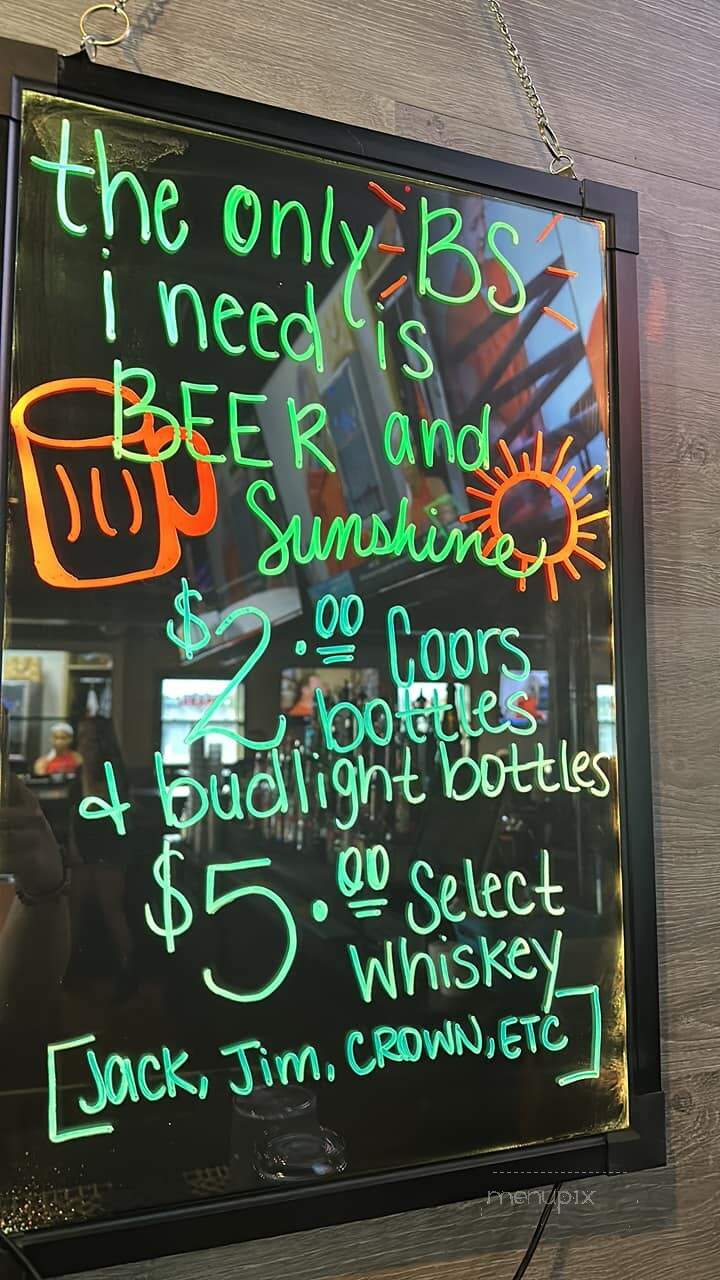 the only BS
i need is
BEER and
Sunshine
$2.00 Coors
bottles
& budlight bottles
$5.00 Select
Whiskey
[Jack, Jim, CROWN, ETC]
menupix